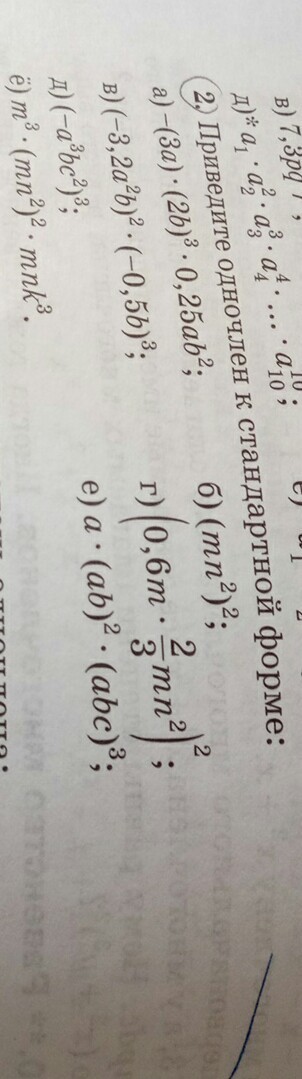 в) 7,3pq
д)* a₁ · a₂² · a₃³ · a₄⁴ · ... · a₁₀¹⁰;
2. Приведите одночлен к стандартной форме:
а) –(3a) · (2b)³ · 0,25ab²; б) (mn²)²;
в) (–3,2a²b)² · (–0,5b)³; г) (0,6m · 2/3 mn²)²;
д) (–a³bc²)³; е) a · (ab)² · (abc)³;
ё) m³ · (mn²)² · mnk³.